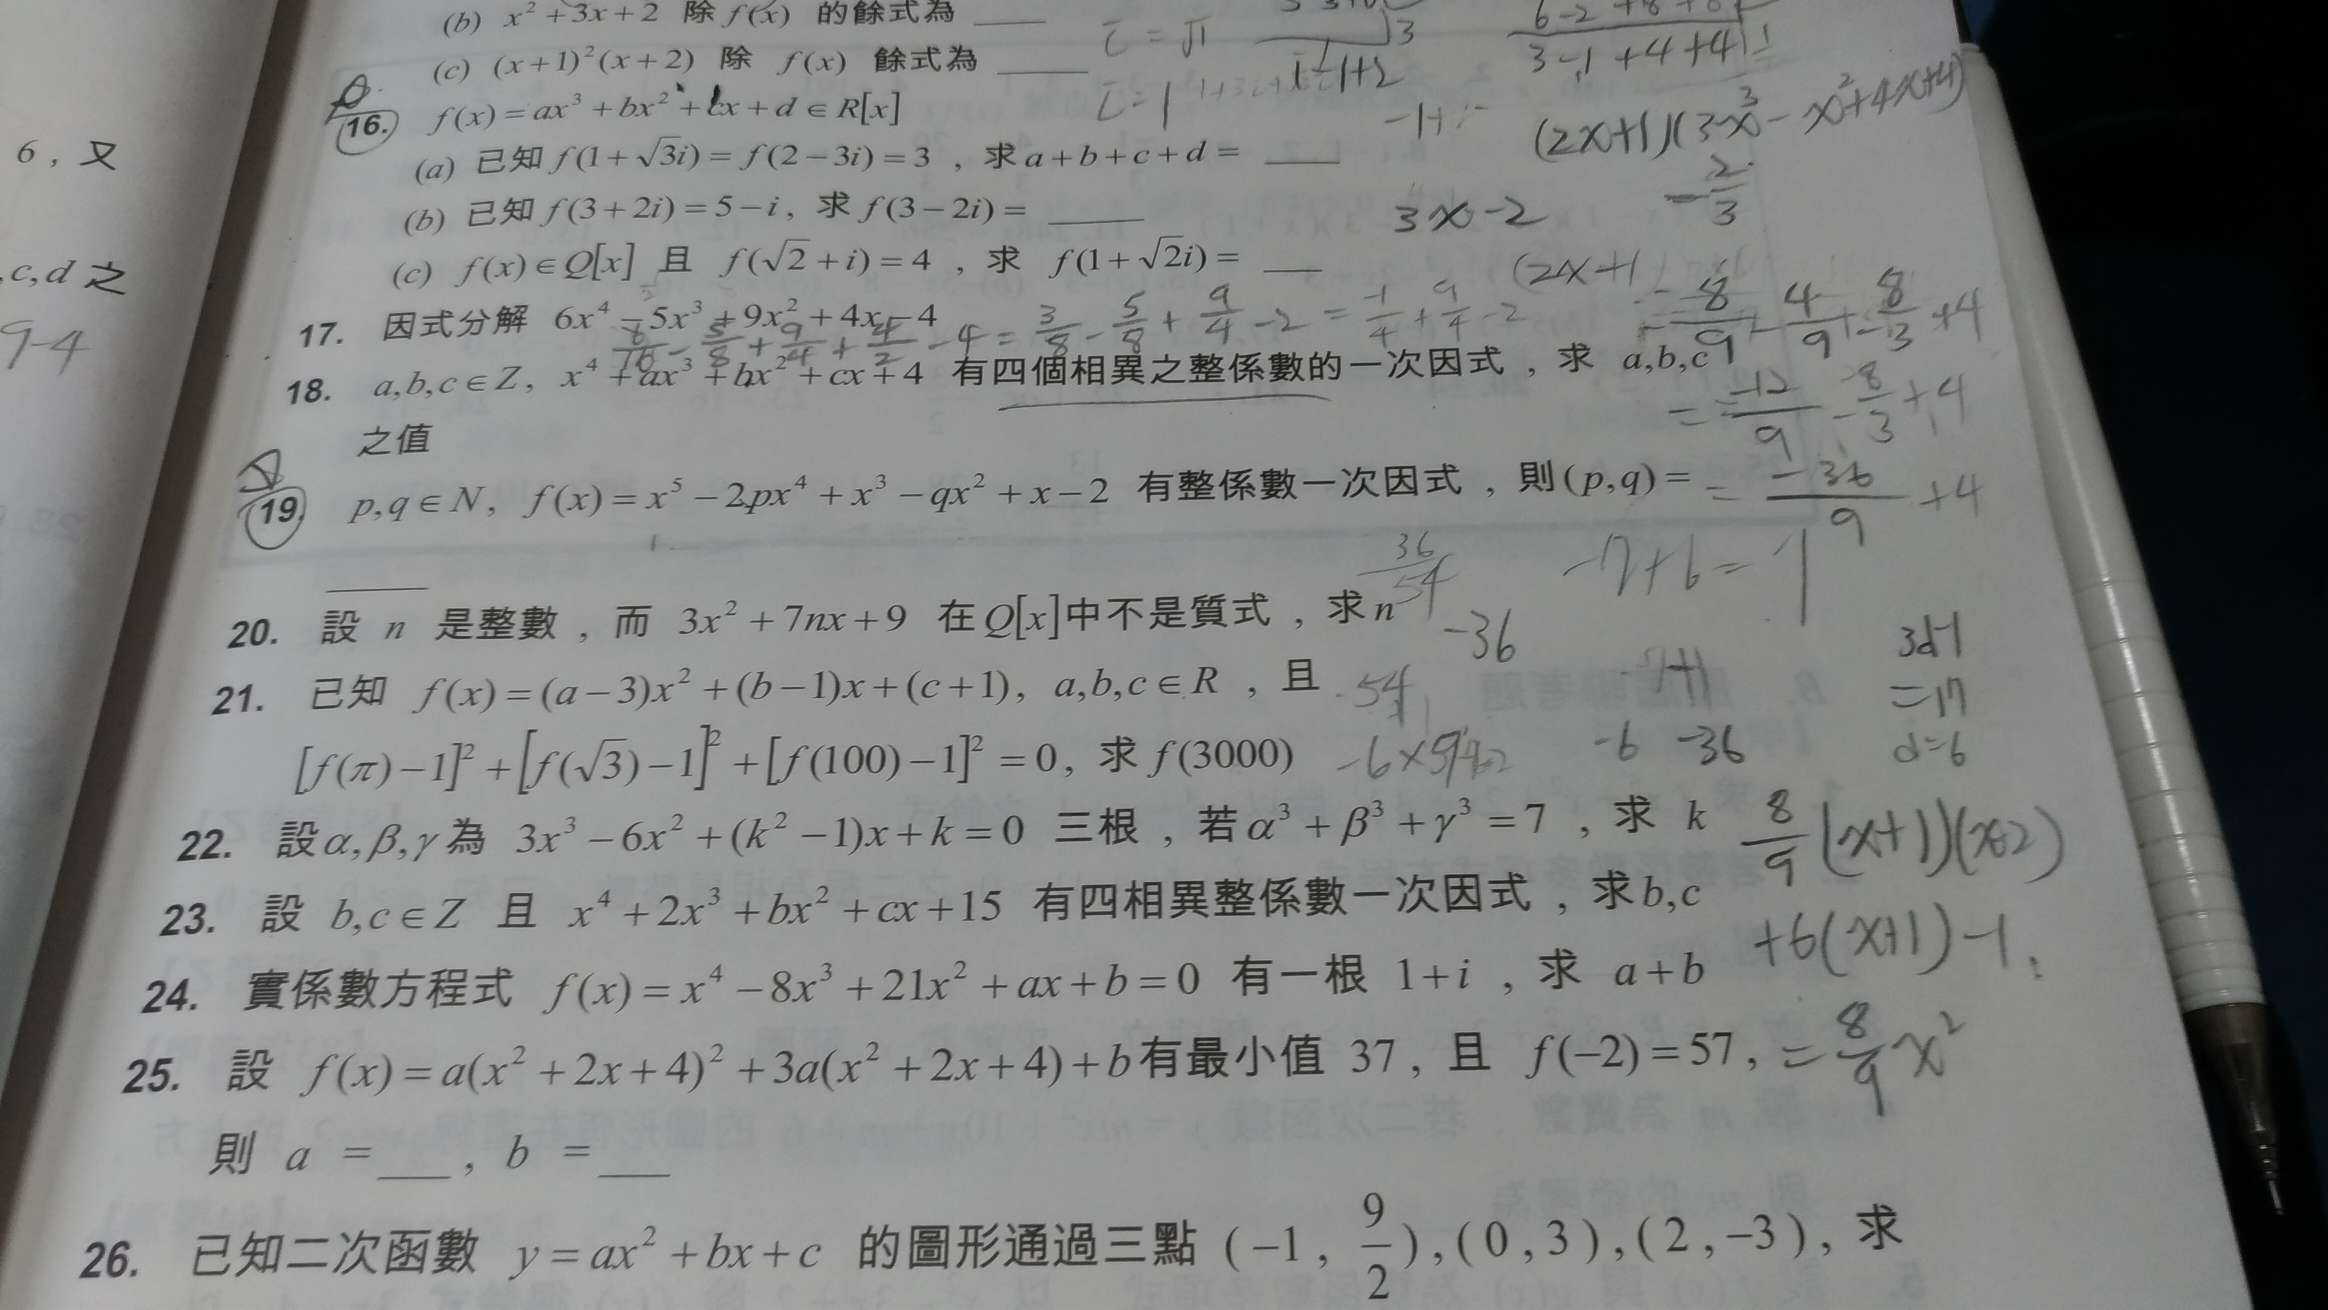 (b) x² + 3x + 2 除 f(x) 的餘式為 ____
(c) (x+1)²(x+2) 除 f(x) 餘式為 ____
16. f(x) = ax³ + bx² + cx + d ∈ R[x]
(a) 已知 f(1+√3i) = f(2−3i) = 3 , 求 a+b+c+d = ____
(b) 已知 f(3+2i) = 5−i, 求 f(3−2i) = ____
(c) f(x) ∈ Q[x] 且 f(√2+i) = 4 , 求 f(1+√2i) = ____
17. 因式分解 6x⁴ − 5x³ + 9x² + 4x − 4
18. a,b,c ∈ Z, x⁴ + ax³ + bx² + cx + 4 有四個相異之整係數的一次因式 , 求 a,b,c
之值
19. p,q ∈ N, f(x) = x⁵ − 2px⁴ + x³ − qx² + x − 2 有整係數一次因式 , 則 (p,q) =
____
20. 設 n 是整數 , 而 3x² + 7nx + 9 在 Q[x] 中不是質式 , 求 n
21. 已知 f(x) = (a−3)x² + (b−1)x + (c+1), a,b,c ∈ R , 且
[f(π)−1]² + [f(√3)−1]² + [f(100)−1]² = 0, 求 f(3000)
22. 設 α,β,γ 為 3x³ − 6x² + (k²−1)x + k = 0 三根 , 若 α³ + β³ + γ³ = 7 , 求 k
23. 設 b,c ∈ Z 且 x⁴ + 2x³ + bx² + cx + 15 有四相異整係數一次因式 , 求 b,c
24. 實係數方程式 f(x) = x⁴ − 8x³ + 21x² + ax + b = 0 有一根 1+i , 求 a+b
25. 設 f(x) = a(x² + 2x + 4)² + 3a(x² + 2x + 4) + b 有最小值 37 , 且 f(−2) = 57 ,
則 a = ____ , b = ____
26. 已知二次函數 y = ax² + bx + c 的圖形通過三點 (−1, 9/2), (0, 3), (2, −3), 求
6 , 又
,c,d 之
9-4
3-1+4+4
(2x+1)(3x³-x²+4x+4)
3x-2
-2/3
(2x+1
6/16 - 5/8 + 9/4 + 4/2 - 4 = 3/8 - 5/8 + 9/4 - 2 = -1/4 + 9/4 - 2
= -12/9 - 8/3 + 4
= -36/9 + 4
36/54
-7+6=1
-36
54
-6 -36
3d-1
=17
d=6
8/9 (x+1)(x-2)
+6(x+1)-1
= 8/9 x²